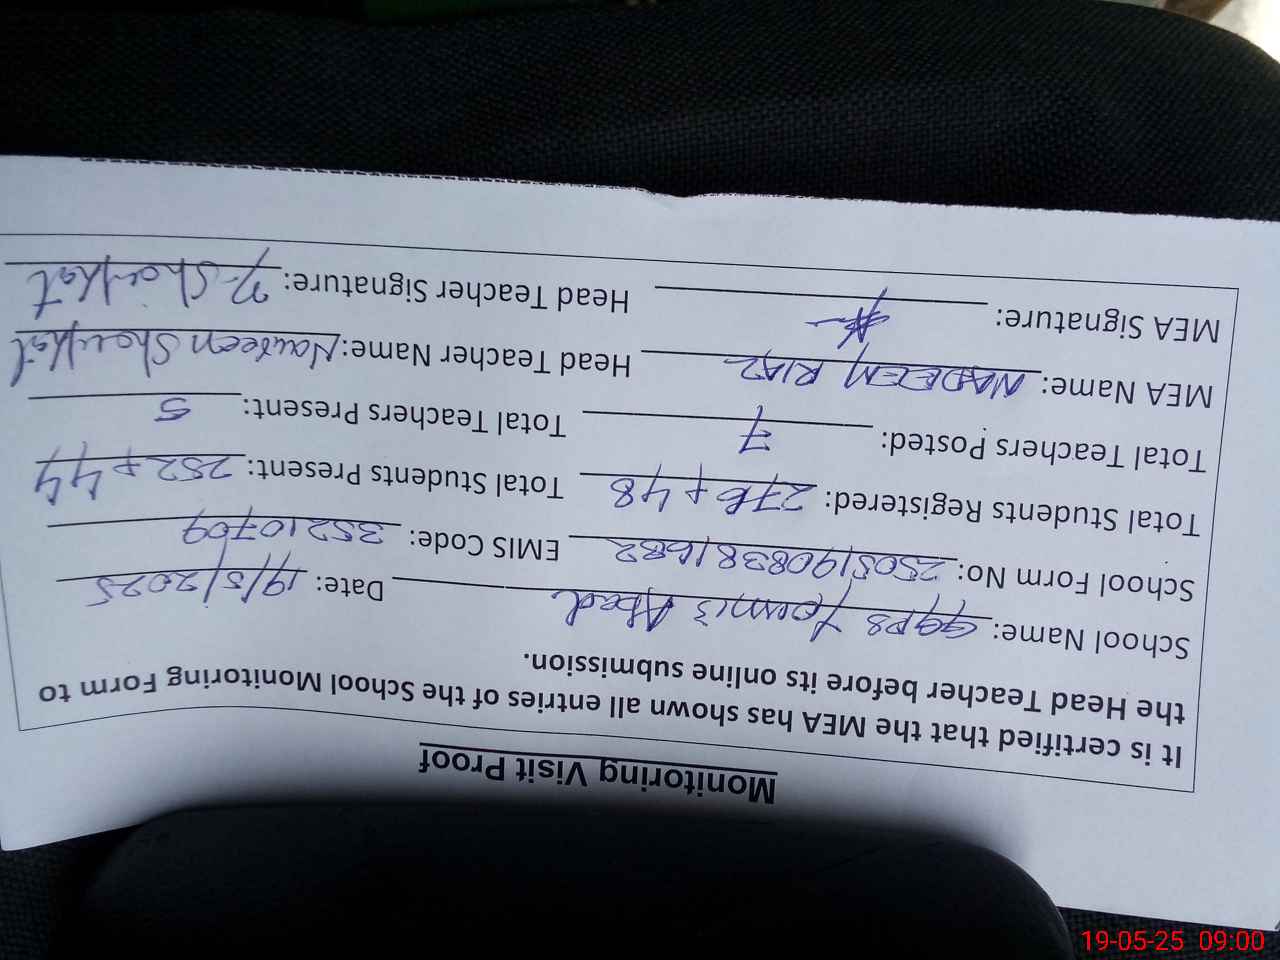 Monitoring Visit Proof
It is certified that the MEA has shown all entries of the School Monitoring Form to
the Head Teacher before its online submission.
School Name: GGPS Abad Date: 19/5/2025
School Form No: 25051908381682 EMIS Code: 35210709
Total Students Registered: 276 + 48 Total Students Present: 252 + 44
Total Teachers Posted: 7 Total Teachers Present: 5
MEA Name: NADEEM RIAZ Head Teacher Name: Naureen Shoukat
MEA Signature: Head Teacher Signature: N. Shoukat
19-05-25 09:00